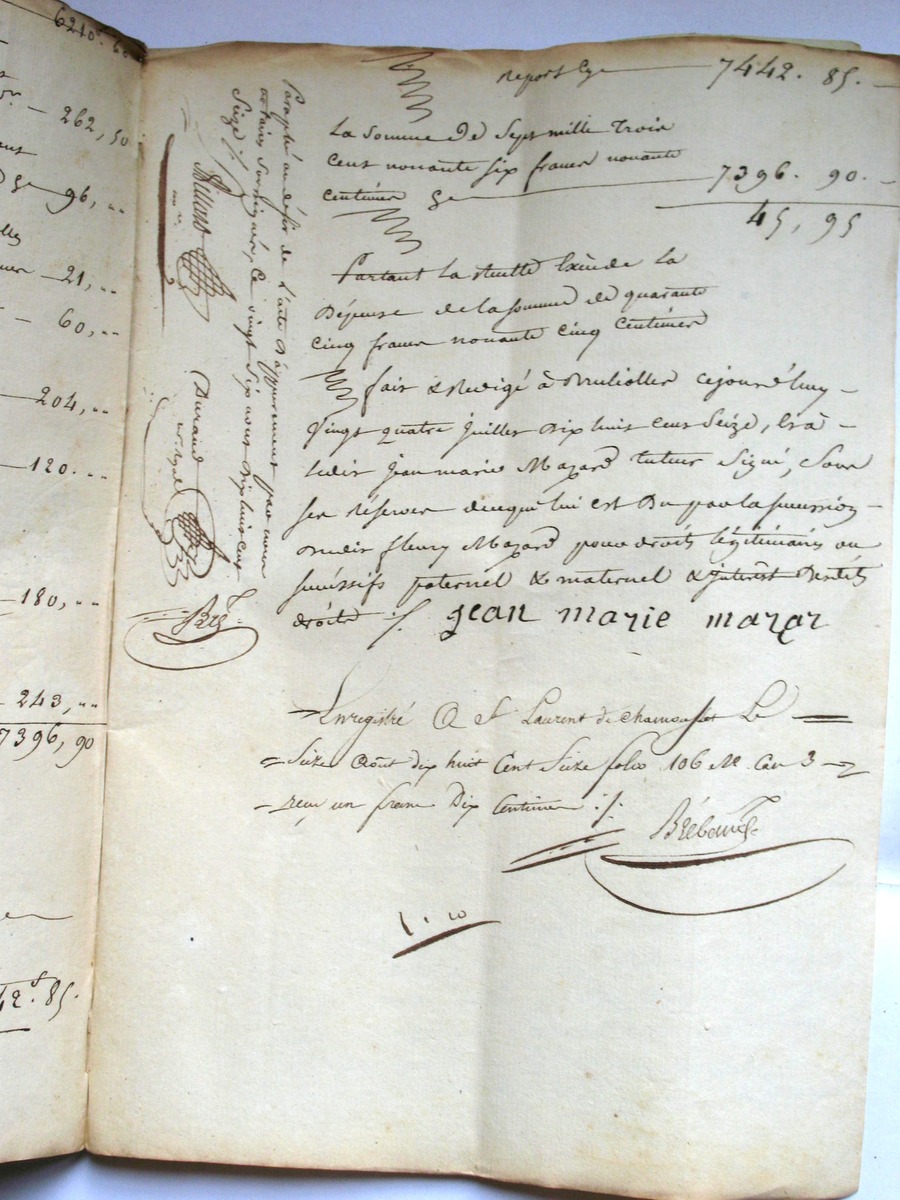 6210
262, 50
96, ..
21, ..
60, ..
204, ..
120. ..
180, ..
243, ..
7396, 90
42.f 85.
Report Cy 7442. 85.
La somme de Sept mille trois
Cent nonante six francs nonante
Centimes Cy 7396. 90.
45, 95
Partant la Recette Excède la
Dépense de la somme de quarante
cinq francs nonante cinq centimes
fait & Redigé à Brulliolles cejourd'huy
Vingt quatre juillet dix huit cent Seize, & a
ledit jean marie Mazard tuteur Signé, Sous
ses réserves de ce qui lui est Du par la succession
dudit fleury Mazard pour droits légitimaires ou
successifs paternel & maternel & interêt desdits
droits ./.
jean marie mazar
Enregistré a St Laurent de chamousset Le
Seize Août dix huit Cent Seize folio 106 Ro. Case 3
reçu un franc Dix Centimes ./.
Brébant
1. 10
Paraphé au désir de l'acte d'appurement par nous
notaires soussignés, Ce vingt Six aout dix huit cent
Seize ./.
Durand